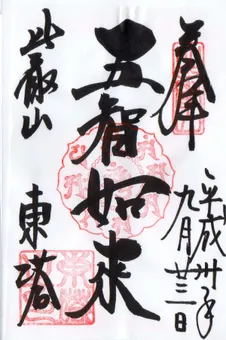 奉拝
平成卅年
九月廿三日
五智如来
比叡山
東塔